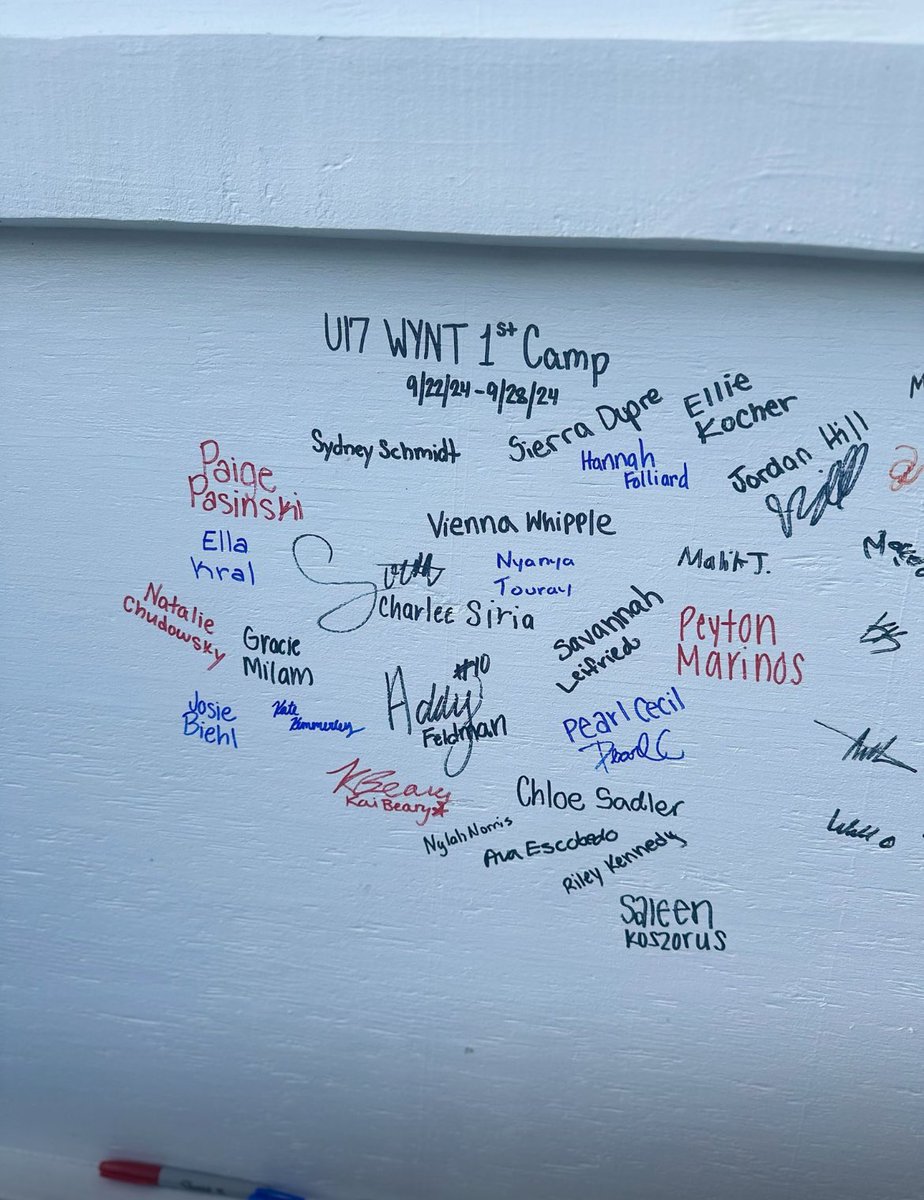 U17 WYNT 1st Camp
9/22/24-9/28/24
Ellie
Kocher
Sierra Dupre
Sydney Schmidt
Hannah
Folliard
Jordan Hill
Paige
Pasinski
Vienna Whipple
Ella
Kral
Nyanya
Touray
Malik J.
Charlee Siria
Natalie
Chudowsky
Gracie
Milam
Savannah
Leifried
Peyton
Marinos
#10
Addy
Feldman
Josie
Biehl
Kate
Kimmerley
Pearl Cecil
Pearl C
KBeary
Kai Beary
Chloe Sadler
Nylah Norris
Ava Escobedo
Riley Kennedy
Saleen
Koszorus